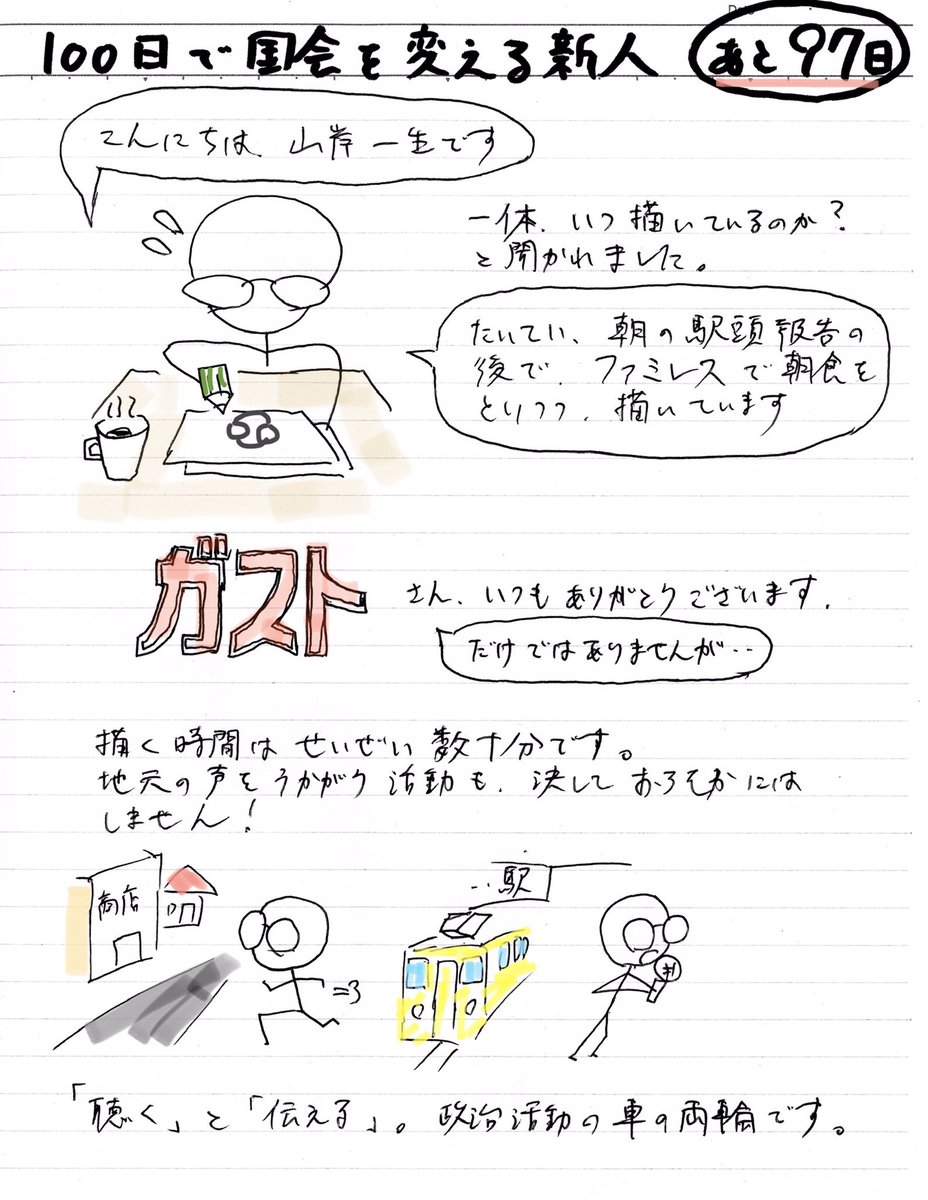 100日で国会を変える新人 あと97日
こんにちは、山岸一生です
一体、いつ描いているのか?
と聞かれました。
たいてい、朝の駅頭報告の
後で、ファミレスで朝食を
とりつつ、描いています
ガスト さん、いつもありがとうございます。
だけではありませんが・・
描く時間はせいぜい数十分です。
地元の声をうかがう活動も、決しておろそかには
しません!
商店
‥駅
「聴く」と「伝える」。政治活動の車の両輪です。